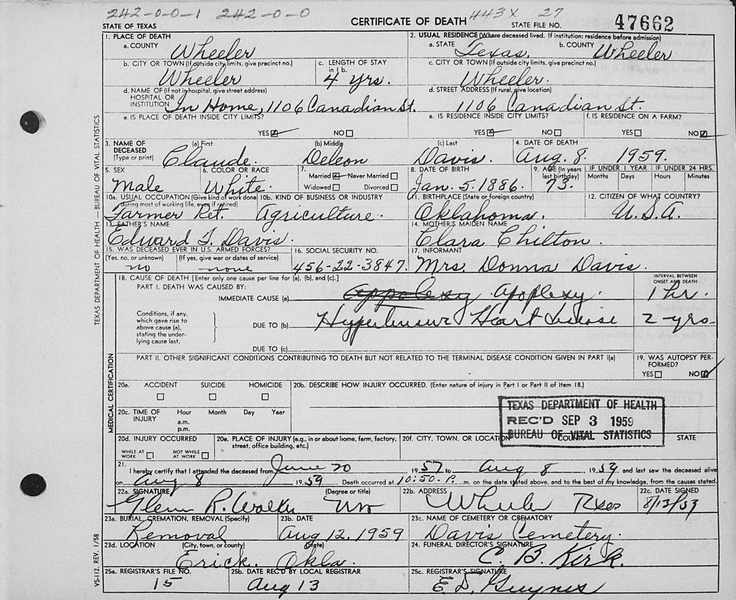 242-0-0-1 242-0-0 CERTIFICATE OF DEATH 443X 27
STATE OF TEXAS STATE FILE NO. 47662
1. PLACE OF DEATH 2. USUAL RESIDENCE (Where deceased lived. If institution: residence before admission)
a. COUNTY Wheeler a. STATE Texas b. COUNTY Wheeler
b. CITY OR TOWN (If outside city limits, give precinct no.) c. LENGTH OF STAY in 1 b. c. CITY OR TOWN (If outside city limits, give precinct no.)
Wheeler 4 yrs. Wheeler.
d. NAME OF (If not in hospital, give street address) HOSPITAL OR INSTITUTION d. STREET ADDRESS (If rural, give location)
In Home, 1106 Canadian St. 1106 Canadian St.
e. IS PLACE OF DEATH INSIDE CITY LIMITS? e. IS RESIDENCE INSIDE CITY LIMITS? f. IS RESIDENCE ON A FARM?
YES NO YES NO YES NO
3. NAME OF DECEASED (Type or print) (a) First (b) Middle (c) Last 4. DATE OF DEATH
Claude. Deleon Davis. Aug. 8. 1959.
5. SEX 6. COLOR OR RACE 7. Married Never Married Widowed Divorced 8. DATE OF BIRTH 9. AGE (In years last birthday) IF UNDER 1 YEAR Months Days IF UNDER 24 HRS. Hours Minutes
Male White. Jan. 5. 1886. 73.
10a. USUAL OCCUPATION (Give kind of work done during most of working life, even if retired) 10b. KIND OF BUSINESS OR INDUSTRY 11. BIRTHPLACE (State or foreign country) 12. CITIZEN OF WHAT COUNTRY?
Farmer Ret. Agriculture. Oklahoma. U.S.A.
13. FATHER'S NAME 14. MOTHER'S MAIDEN NAME
Edward T. Davis. Clara Chilton.
15. WAS DECEASED EVER IN U.S. ARMED FORCES? (Yes, no, or unknown) (If yes, give war or dates of service) 16. SOCIAL SECURITY NO. 17. INFORMANT
no none 456-22-3847. Mrs. Donna Davis.
18. CAUSE OF DEATH [Enter only one cause per line for (a), (b), and (c).] INTERVAL BETWEEN ONSET AND DEATH
PART I. DEATH WAS CAUSED BY:
IMMEDIATE CAUSE (a) Appolexy Apoplexy. 1 hr.
Conditions, if any, which gave rise to above cause (a), stating the underlying cause last.
DUE TO (b) Hypertensive Heart Disease 2 yrs
DUE TO (c)
PART II. OTHER SIGNIFICANT CONDITIONS CONTRIBUTING TO DEATH BUT NOT RELATED TO THE TERMINAL DISEASE CONDITION GIVEN IN PART I(a) 19. WAS AUTOPSY PERFORMED?
YES NO
20a. ACCIDENT SUICIDE HOMICIDE 20b. DESCRIBE HOW INJURY OCCURRED. (Enter nature of injury in Part I or Part II of Item 18.)
20c. TIME OF INJURY Hour Month Day Year
a.m.
p.m.
TEXAS DEPARTMENT OF HEALTH
REC'D SEP 3 1959
BUREAU OF VITAL STATISTICS
20d. INJURY OCCURRED 20e. PLACE OF INJURY (e.g., in or about home, farm, factory, street, office building, etc.) 20f. CITY, TOWN, OR LOCATION COUNTY STATE
WHILE AT WORK NOT WHILE AT WORK
21. I hereby certify that I attended the deceased from June 20 1957 to Aug 8 1959 and last saw the deceased alive
on Aug 8 1959 Death occurred at 10:50 P. m. on the date stated above, and to the best of my knowledge, from the causes stated.
22a. SIGNATURE (Degree or title) 22b. ADDRESS 22c. DATE SIGNED
Glenn R. Walker MD Wheeler 8/13/59
23a. BURIAL, CREMATION, REMOVAL (Specify) 23b. DATE 23c. NAME OF CEMETERY OR CREMATORY
Removal Aug 12, 1959 Davis Cemetery.
23d. LOCATION (City, town, or county) (State) 24. FUNERAL DIRECTOR'S SIGNATURE
Erick, Okla. C. B. Kirk.
25a. REGISTRAR'S FILE NO. 25b. DATE REC'D BY LOCAL REGISTRAR 25c. REGISTRAR'S SIGNATURE
15 Aug 13 E. D. Guynes
TEXAS DEPARTMENT OF HEALTH — BUREAU OF VITAL STATISTICS
MEDICAL CERTIFICATION
VS-112, REV. 1/58